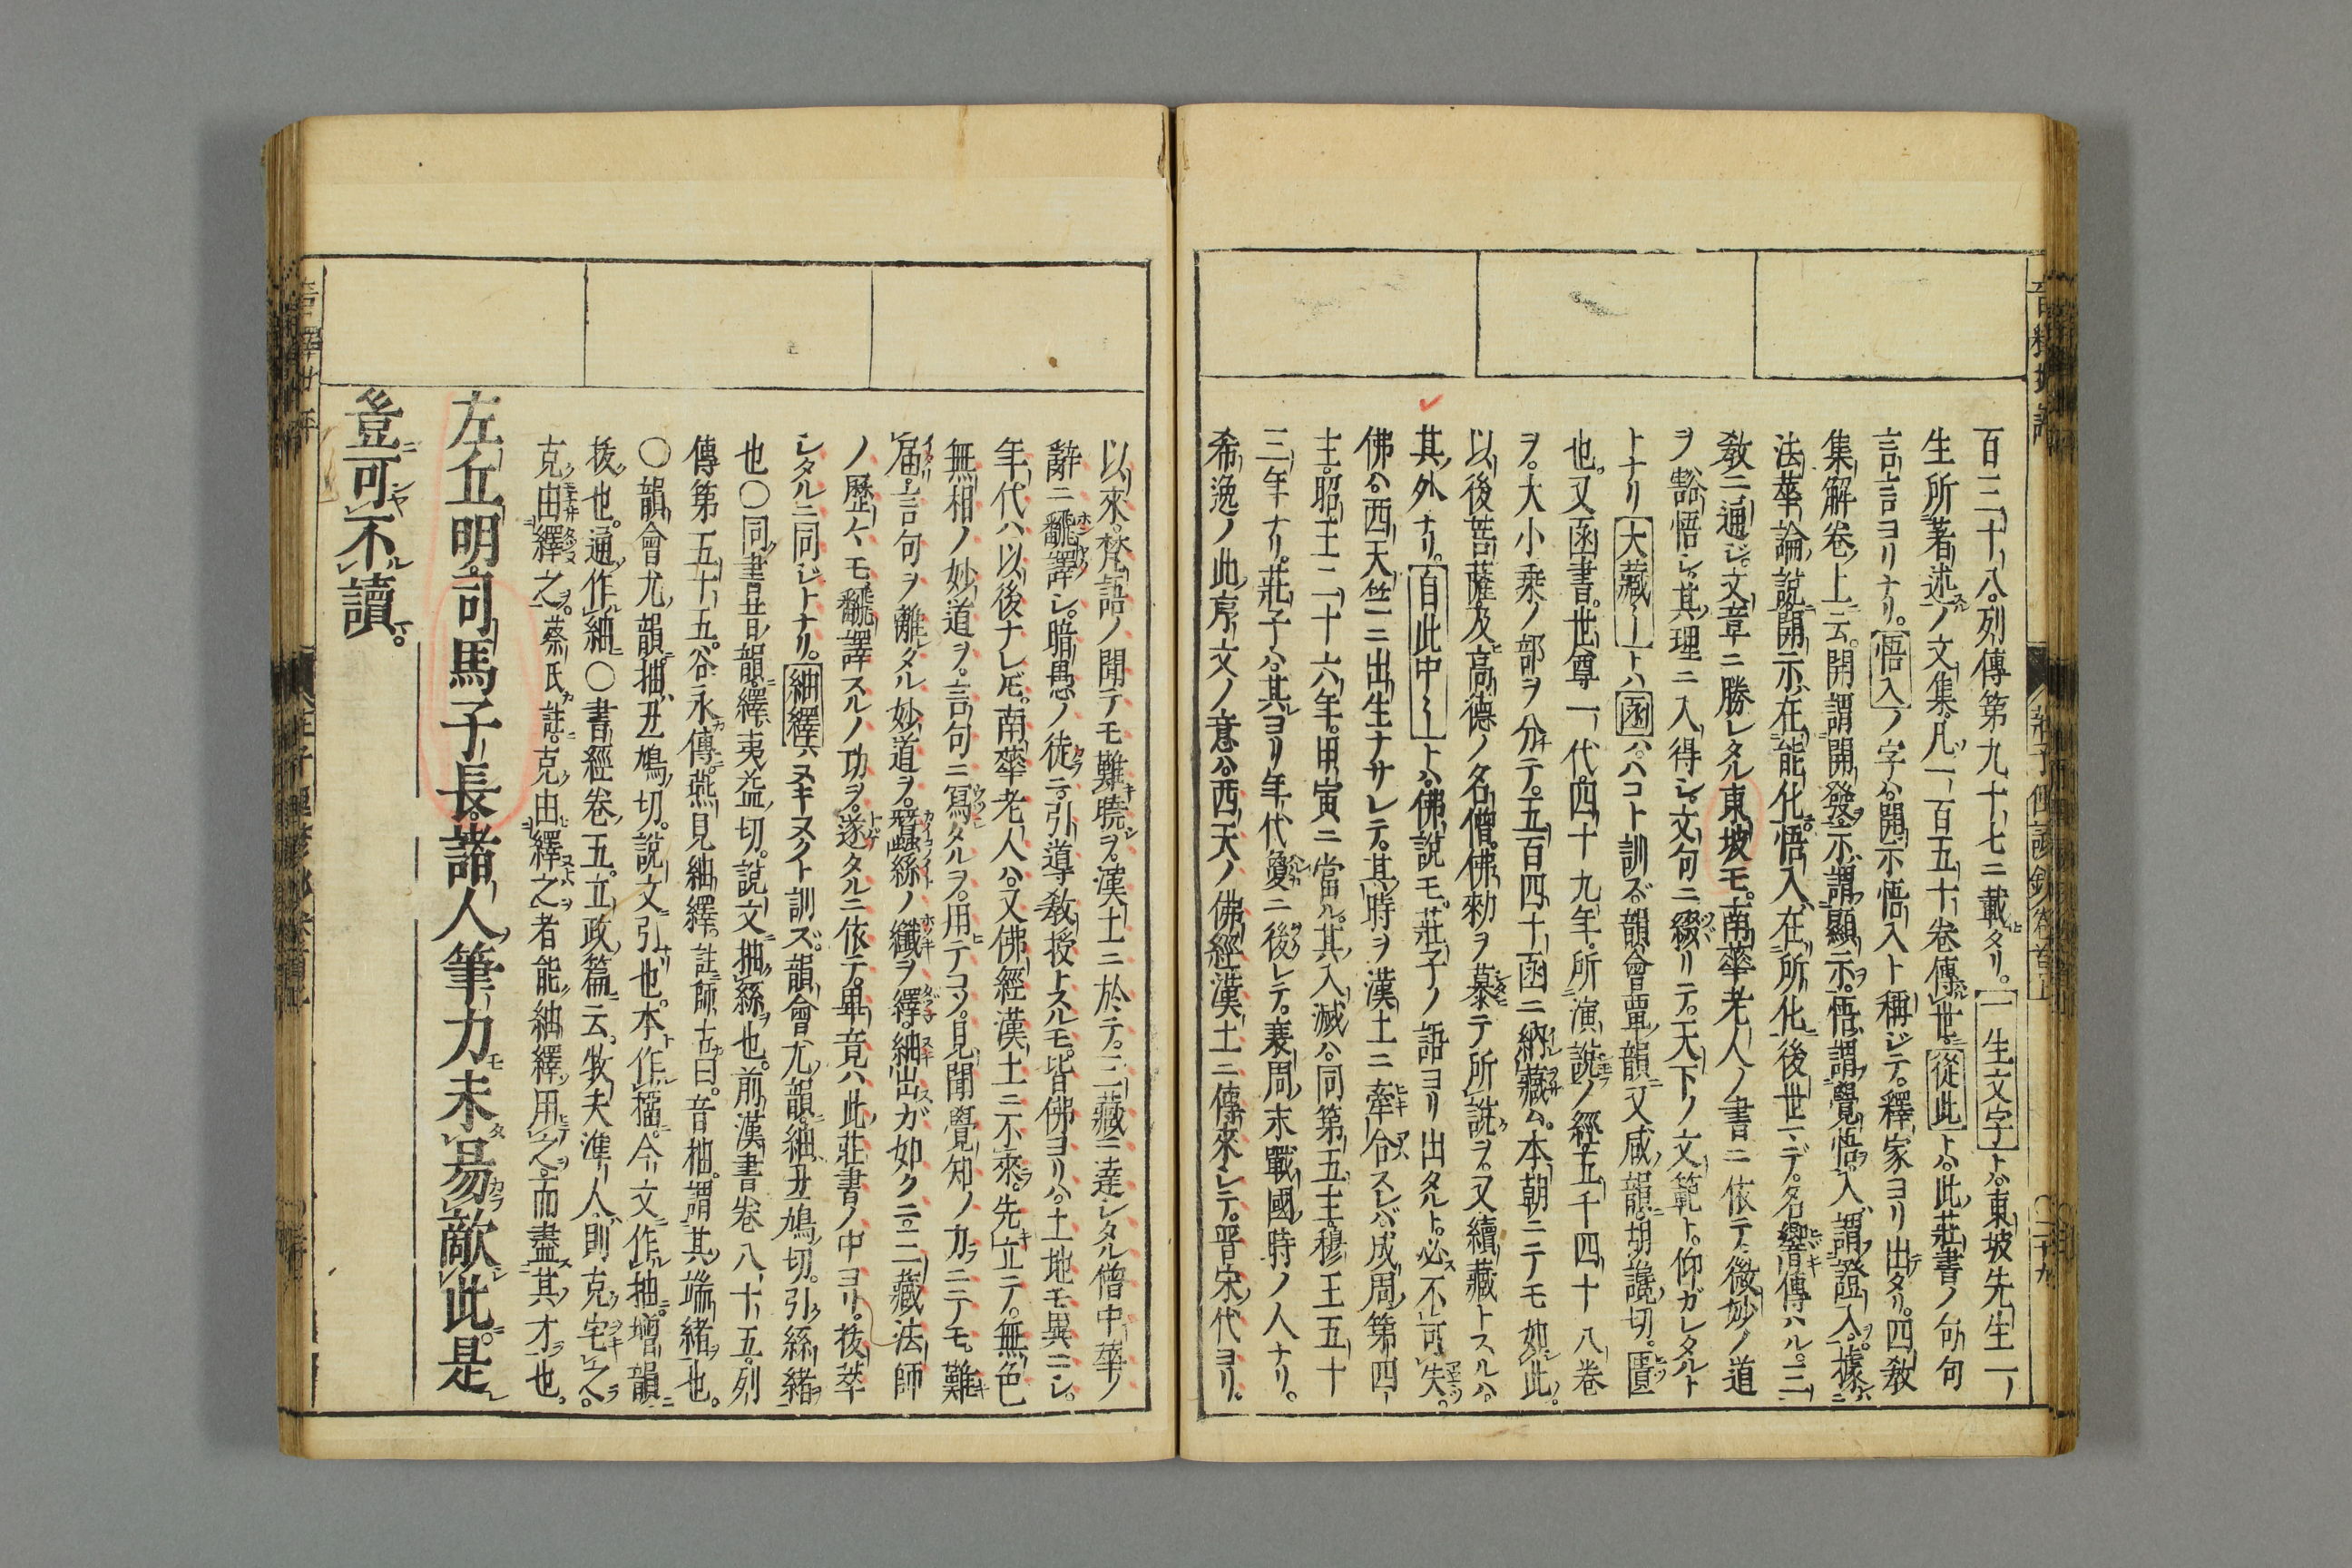 百三十八。列傳第九十七ニ載タリ。一生文字トハ。東坡先生一
生所著述ノ文集。凡一百五十卷傳世。從此トハ。此莊書ノ句句
言言ヨリナリ。悟入ノ字ハ。開示悟入ト稱ジテ。釋家ヨリ出タリ。四教
集解卷上云。開謂開發。示謂顯示。悟謂覺悟。入謂證入。據
法華論説。開示在能化。悟入在所化。後世マデ。名響傳ハル。三
教ニ通ジ。文章ニ勝レタル東坡モ。南華老人ノ書ニ依テ。微妙ノ道
ヲ豁悟シ。其理ニ入得シ。文句ニ綴リテ。天下ノ文範ト。仰ガレタルト
トナリ大藏〱トハ函ハ。ハコト訓ズ。韻會覃韻。又咸韻。胡讒切。匱
也。又函書。世尊一代。四十九年。所演説ノ經。五千四十八卷
ヲ。大小乘ノ部ヲ分テ。五百四十函ニ納藏ム。本朝ニテモ如此。
以後菩薩及高德ノ名僧。佛勅ヲ慕テ所説ヲ。又續藏トスルハ。
其外ナリ。自此中〱トハ。佛說モ。莊子ノ語ヨリ出タルト。必不可失。
佛ハ。西天竺ニ出生ナサレテ。其時ヲ漢土ニ牽合スレバ。成周第四
主。昭王二十六年。甲寅ニ當ル。其入滅ハ。同第五主穆王五十
三年ナリ。莊子ハ。其ヨリ年代夐ニ後レテ。衰周末戰國時ノ人ナリ。
希逸ノ此序文ノ意ハ。西天ノ佛經。漢土ニ傳來シテ。晋宋代ヨリ。
以來。梵語ノ聞テモ難曉ヲ。漢土ニ於テ。三藏ニ達シタル僧。中華ノ
辭ニ飜譯シ。暗愚ノ徒ニ。引導教授トスルモ。皆佛ヨリハ。土地モ異ニシ。
年代ハ以後ナレドモ。南華老人ハ。又佛經漢土ニ不來。先立テ。無色
無相ノ妙道ヲ。言句ニ寫タルヲ。用テコソ。見聞覺知ノ力ニテモ。難
届。言句ヲ離タル妙道ヲ。蠶絲ノ纎ヲ繹。紬出ガ如クニ。三藏法師
ノ歷々モ飜譯スルノ功ヲ。遂タルニ依テ。畢竟ハ此莊書ノ中ヨリ。拔萃
シタルニ同ジトナリ。紬繹ハヌキヌクト訓ズ。韻會尤韻。紬丑鳩切。引絲緒
也〇同書昔韻。繹夷益切。說文抽絲也。前漢書卷八十五。列
傳第五十五。谷永傳。燕見紬繹。註師古曰。音柚。謂其端緒也。
〇韻會尤韻抽丑鳩切。說文引也。本作㩅。今文作抽。增韻
拔也。通作紬〇書經卷五。立政篇云。牧夫準人。則克宅之。
克由繹之。蔡氏註。克由繹之者。能紬繹用之。而盡其才也。
左丘明。司馬子長。諸人筆力未易敵此。是
豈可不讀。